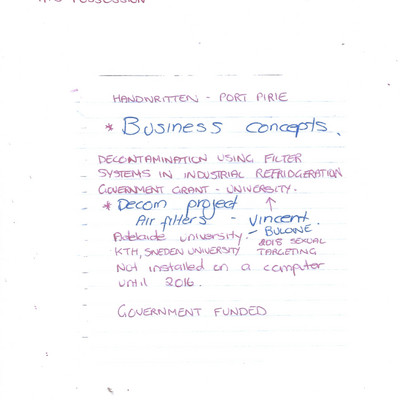 POSSESSION
HANDWRITTEN - PORT PIRIE
* Business concepts.
DECONTAMINATION USING FILTER
SYSTEMS IN INDUSTRIAL REFRIDGERATION
GOVERNMENT GRANT - UNIVERSITY. ↑
* Decom project
Air filters - Vincent.
Adelaide university. - BULONE
KTH, SWEDEN UNIVERSITY 2018 SEXUAL TARGETING
Not installed on a computer
until 2016.
GOVERNMENT FUNDED